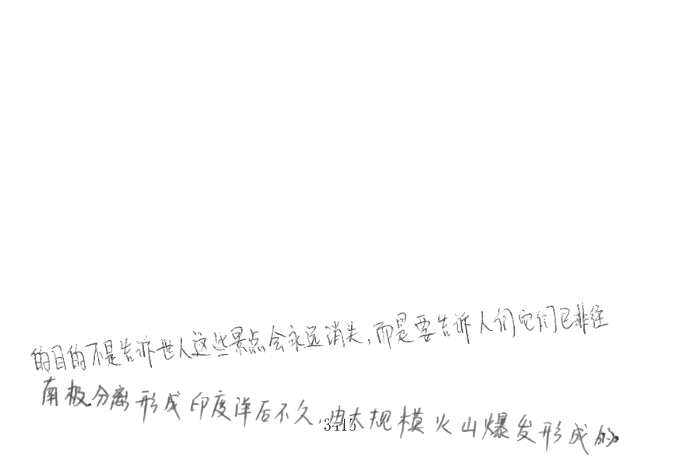 的目的不是告诉世人这些景点会永远消失,而是要告诉人们它们已非经
南极分离形成印度洋后不久,由大规模火山爆发形成的。
3415